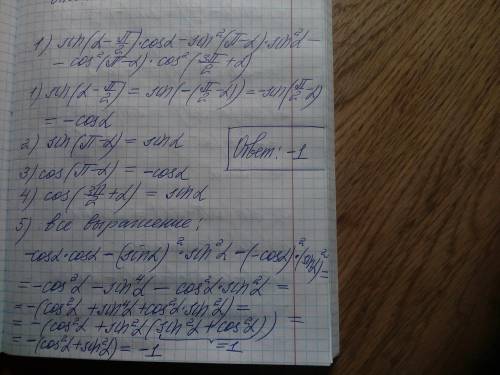 1) sin(α - π/2)·cosα - sin²(π-α)·sin²α -
- cos²(π-α)·cos²(3π/2 + α)
1) sin(α - π/2) = sin(-(π/2 - α)) = -sin(π/2 - α)
= -cosα
2) sin(π-α) = sinα
Ответ: -1
3) cos(π-α) = -cosα
4) cos(3π/2 + α) = sinα
5) все выражение:
-cosα·cosα - (sinα)²·sin²α - (-cosα)²·(sinα)² =
= -cos²α - sin⁴α - cos²α·sin²α =
= -(cos²α + sin⁴α + cos²α·sin²α) =
= -(cos²α + sin²α(sin²α + cos²α)) =
= -(cos²α + sin²α) = -1 =1